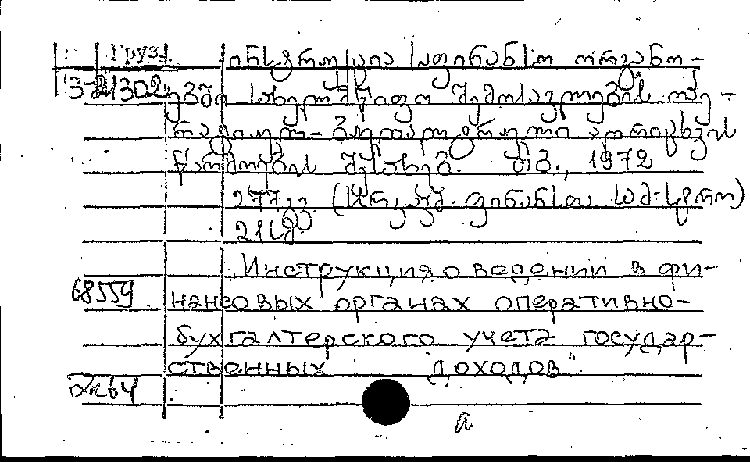 Груз. ინსტრუქცია საფინანსო ორგანო-
3-21302 ებში სახელმწიფო შემოსავლების ოპე-
რატიულ-ბუღალტრული აღრიცხვის
წარმოების შესახებ. თბ., 1972
277 გვ. (სსრ კავშ. ფინანსთა სამ-სტრო)
Инструкция о ведении в фи-
68559 нансовых органах оперативно-
бухгалтерского учета государ-
ственных доходов